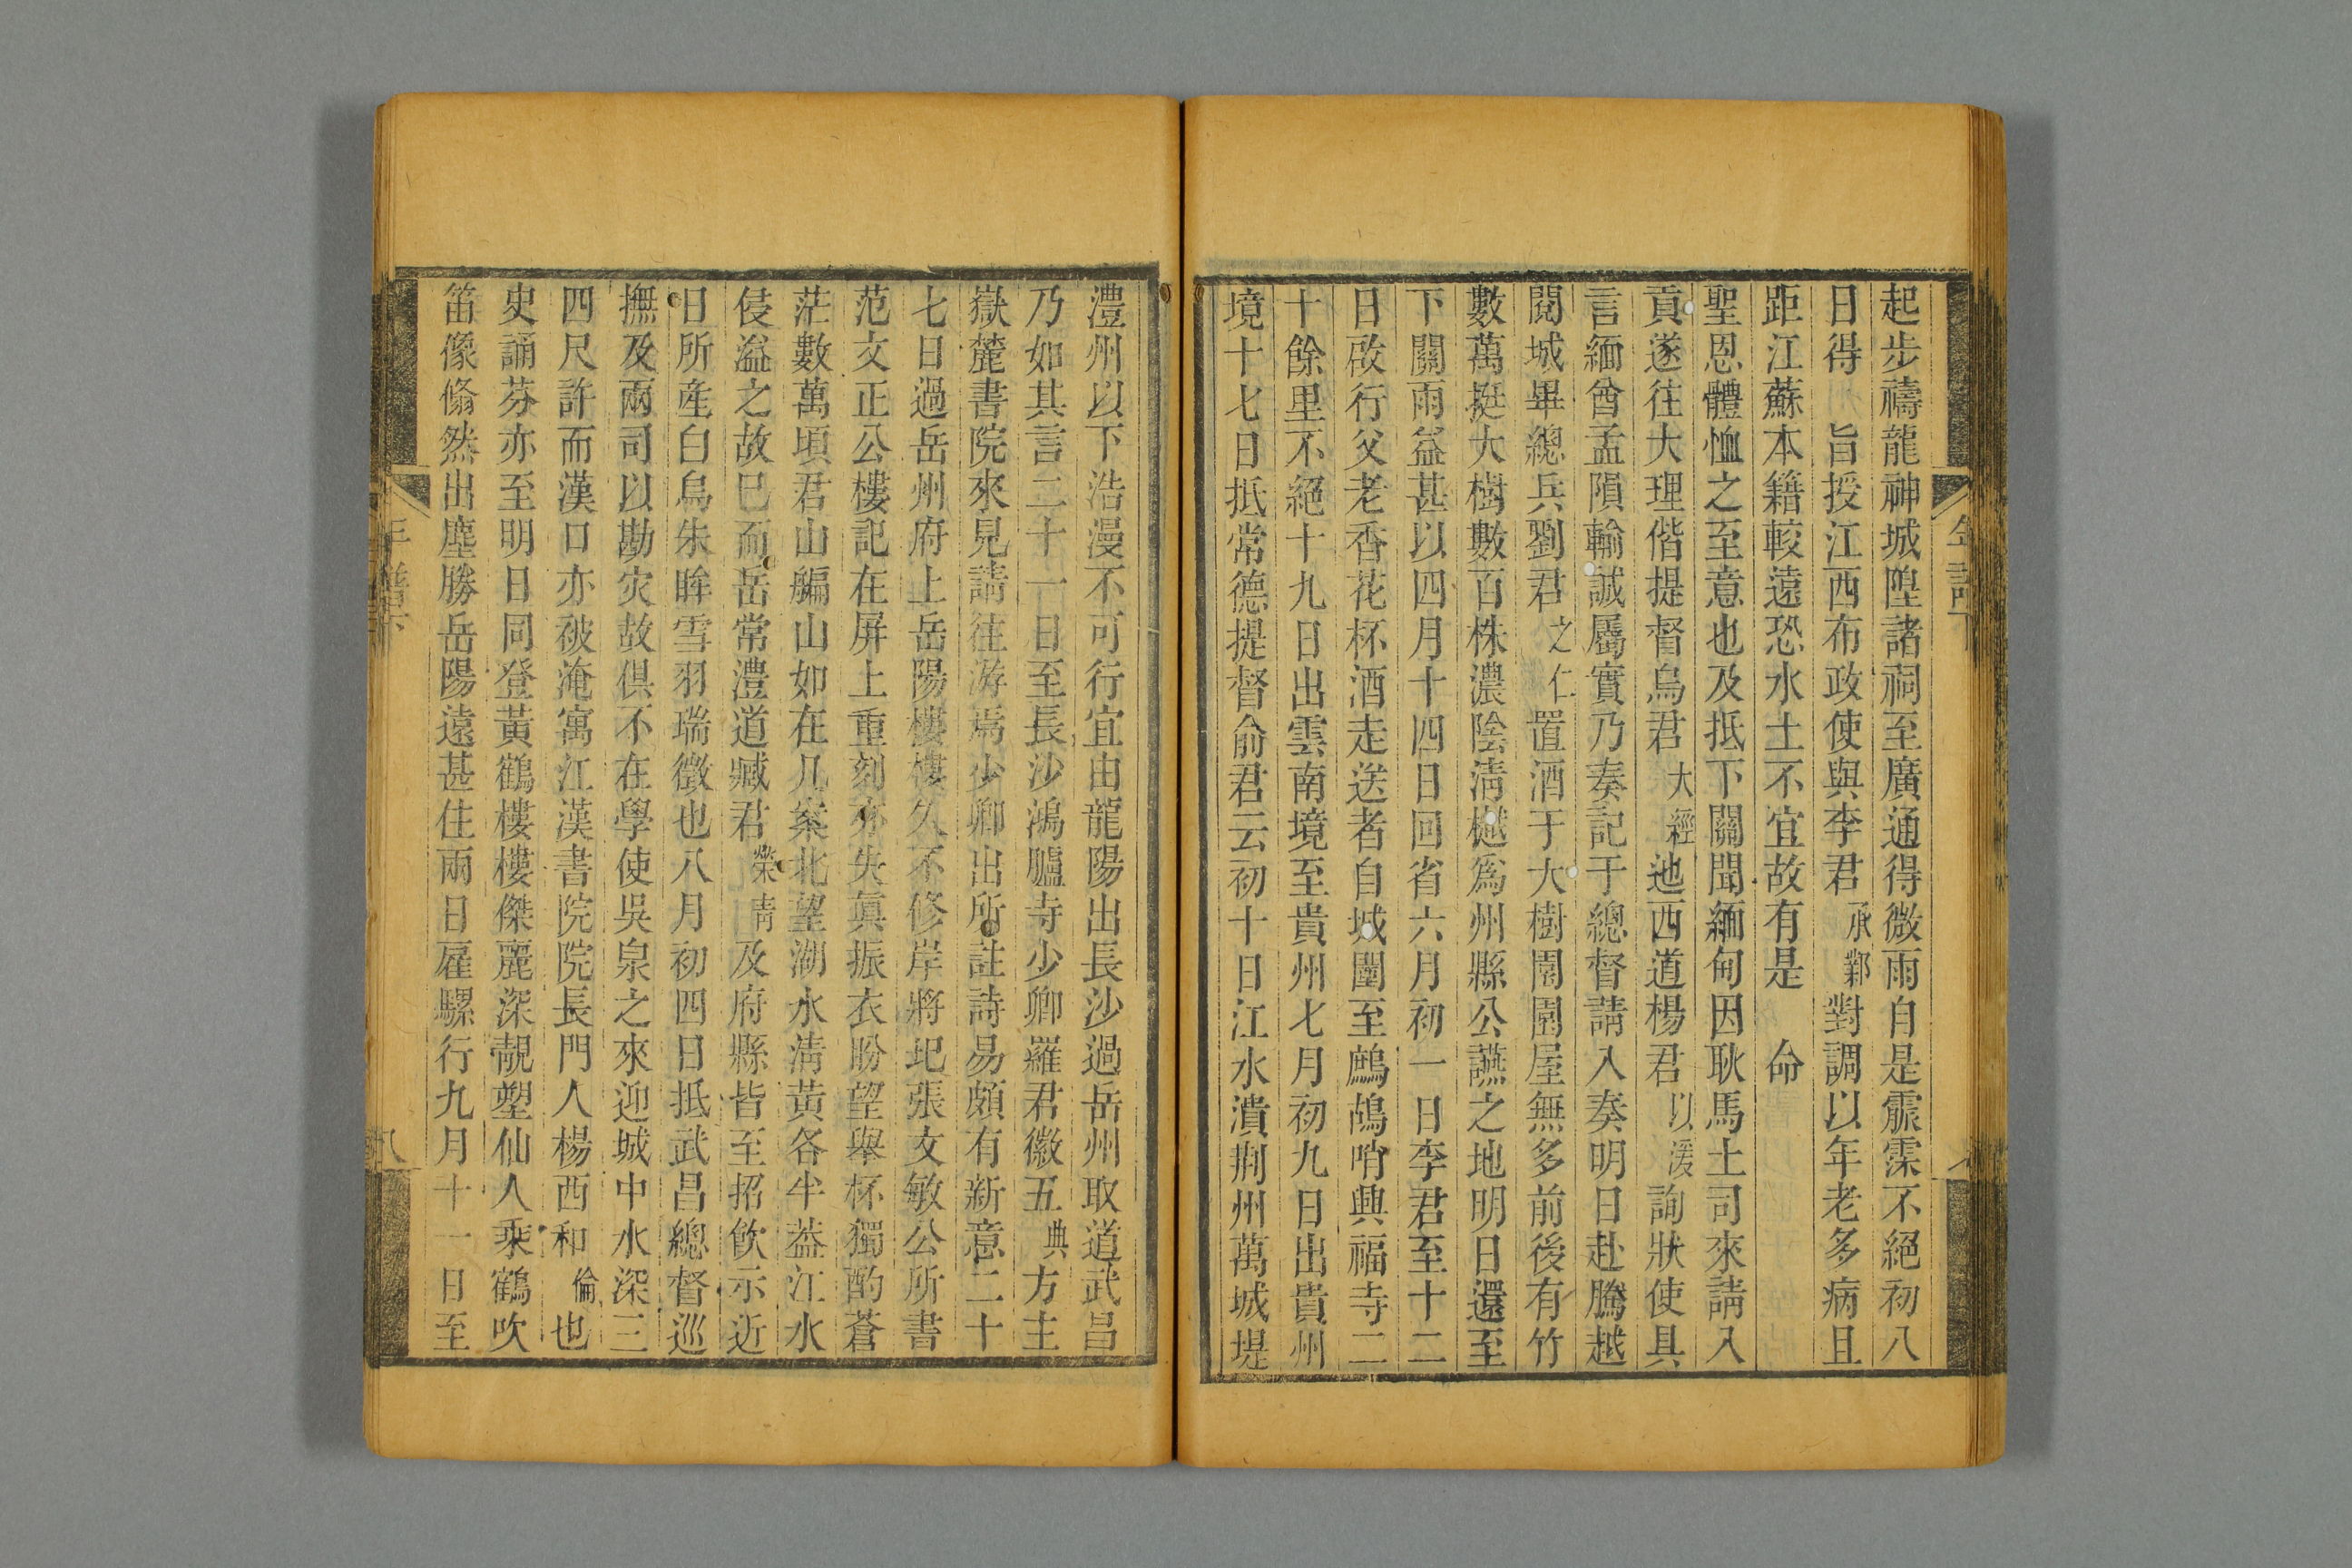 起步禱龍神城隍諸祠至廣通得微雨自是霢霂不絕初八
日得　旨授江西布政使與李君承鄴對調以年老多病且
距江蘇本籍較遠恐水土不宜故有是　命
聖恩體恤之至意也及抵下關聞緬甸因耿馬土司來請入
貢遂往大理偕提督烏君大經迤西道楊君以湲詢狀使具
言緬酋孟隕輸誠屬實乃奏記于總督請入奏明日赴騰越
閱城畢總兵劉君之仁置酒于大樹園園屋無多前後有竹
數萬挺大樹數百株濃陰清樾爲州縣公讌之地明日還至
下關雨益甚以四月十四日回省六月初一日李君至十二
日啟行父老香花杯酒走送者自城闉至鷓鴣哨興福寺二
十餘里不絕十九日出雲南境至貴州七月初九日出貴州
境十七日抵常德提督俞君云初十日江水潰荆州萬城堤
年譜下
澧州以下浩漫不可行宜由龍陽出長沙過岳州取道武昌
乃如其言二十一日至長沙鴻臚寺少卿羅君徽五典方主
嶽麓書院來見請往游焉少卿出所註詩易頗有新意二十
七日過岳州府上岳陽樓樓久不修岸將圯張文敏公所書
范文正公樓記在屏上重刻亦失眞振衣盼望舉杯獨酌蒼
茫數萬頃君山艑山如在几案北望湖水清黃各半葢江水
侵溢之故巳而岳常澧道臧君榮靑及府縣皆至招飮示近
日所產白烏朱眸雪羽瑞徵也八月初四日抵武昌總督巡
撫及兩司以勘灾故俱不在學使吳泉之來迎城中水深三
四尺許而漢口亦被淹寓江漢書院院長門人楊西和倫也
史誦芬亦至明日同登黃鶴樓樓傑麗深靚塑仙人乘鶴吹
笛像翛然出塵勝岳陽遠甚住兩日雇騾行九月十一日至
年譜下
八